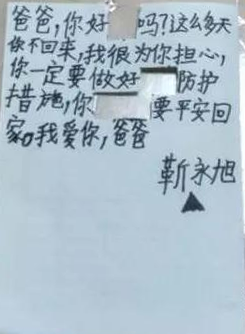 爸爸,你好 吗?这么多天
你不回来,我很为你担心,
你一定要做好 防护
措施,你 要平安回
家。我爱你,爸爸
靳永旭